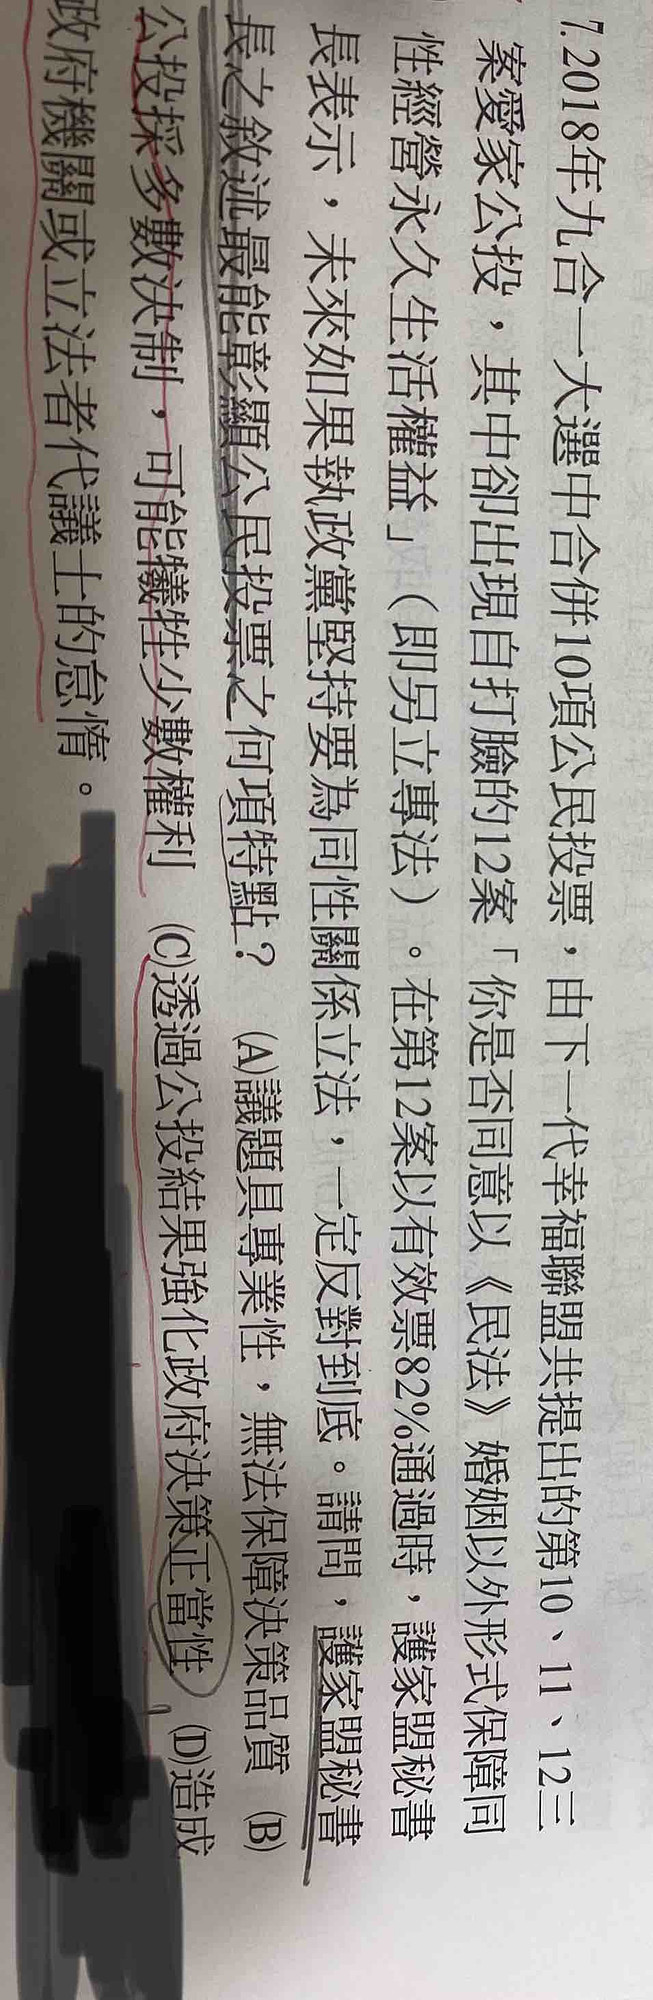 7.2018年九合一大選中合併10項公民投票，由下一代幸福聯盟共提出的第10、11、12三
案愛家公投，其中卻出現自打臉的12案「你是否同意以《民法》婚姻以外形式保障同
性經營永久生活權益」（即另立專法）。在第12案以有效票82%通過時，護家盟秘書
長表示，未來如果執政黨堅持要為同性關係立法，一定反對到底。請問，護家盟秘書
長之敘述最能彰顯公民投票之何項特點？　(A)議題具專業性，無法保障決策品質　(B)
公投採多數決制，可能犧牲少數權利　(C)透過公投結果強化政府決策正當性　(D)造成
政府機關或立法者代議士的怠惰。